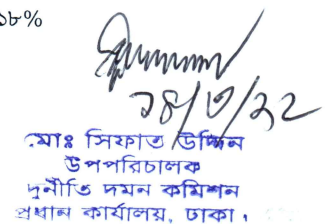 ১৮%
১৪/৩/২২
মোঃ সিফাত উদ্দিন
উপপরিচালক
দুর্নীতি দমন কমিশন
প্রধান কার্যালয়, ঢাকা।